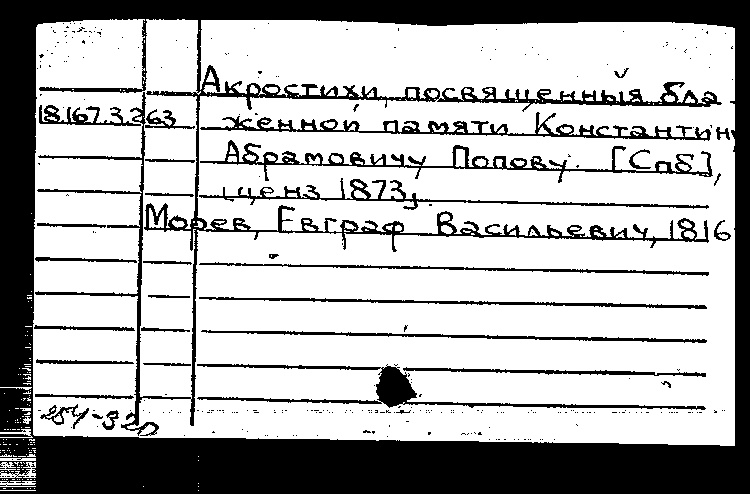 Акростихи, посвященныя бла-
18.167.3.263 женной памяти Константину
Абрамовичу Попову. [Спб],
ценз 1873,
Морев, Евграф Васильевич, 1816
254-320